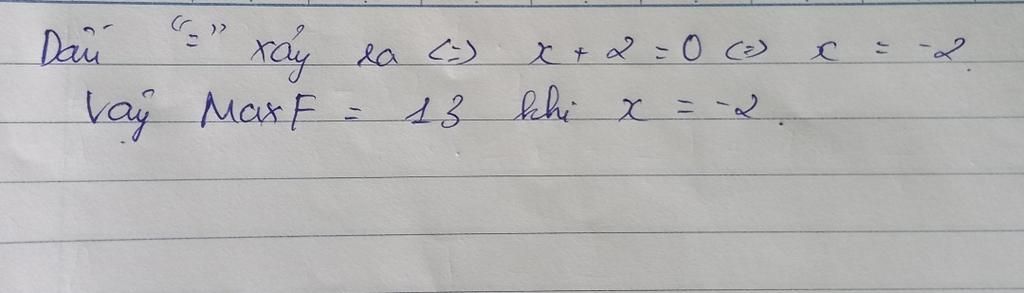 Dấu "=" xảy ra (=) x + 2 = 0 (=) x = -2.
Vậy MaxF = 13 khi x = -2.